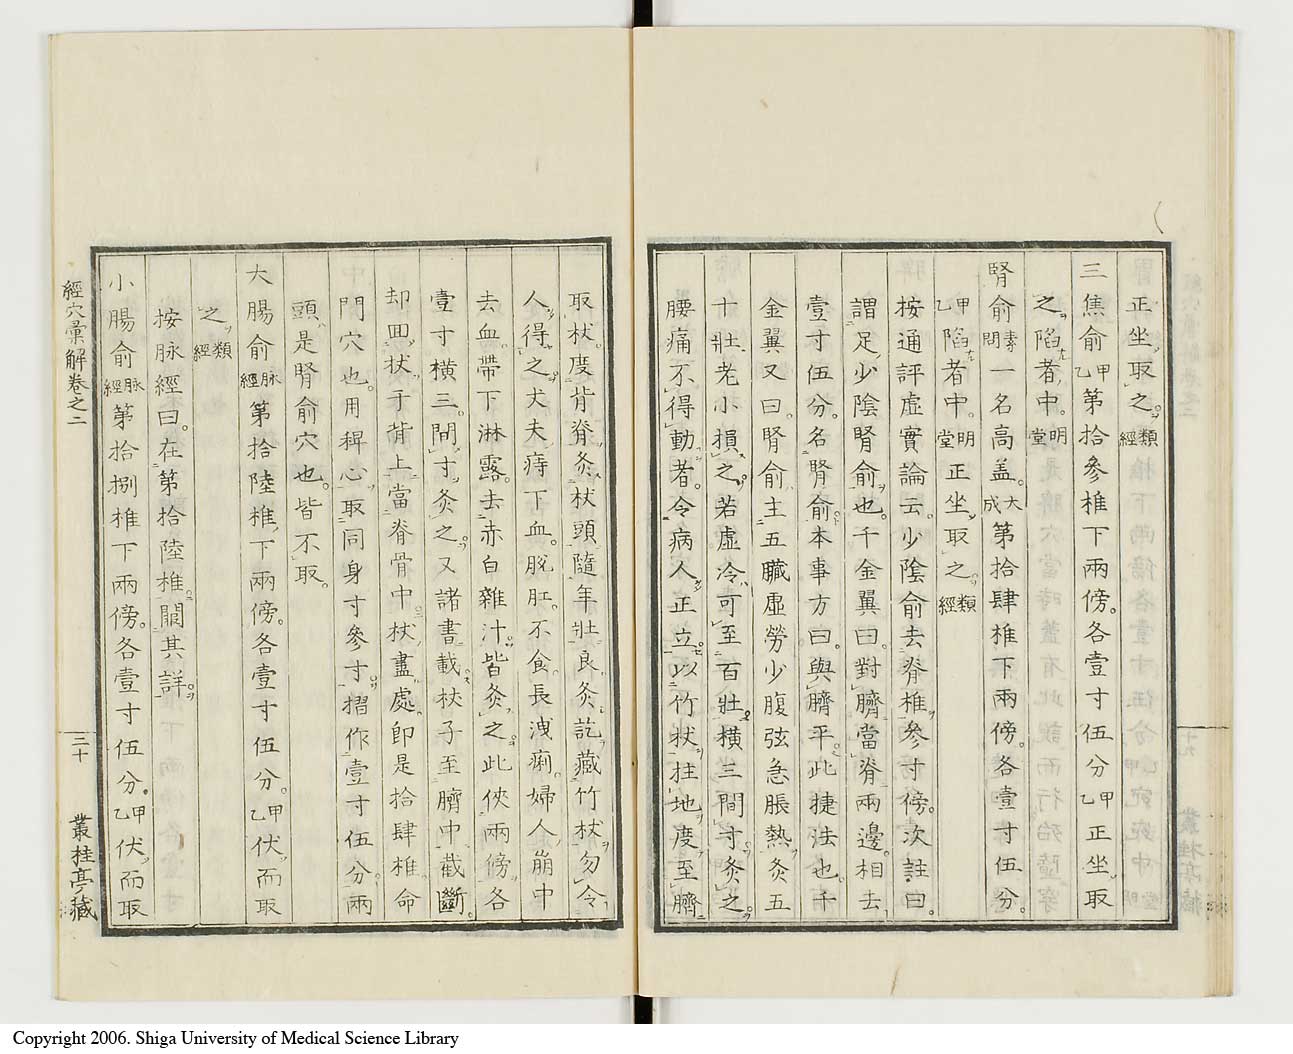 正坐取之類經
三焦俞甲乙第拾參椎下兩傍各壹寸伍分甲乙正坐取
之陷者中明堂
腎俞素問一名高盖大成第拾肆椎下兩傍各壹寸伍分
甲乙陷者中明堂正坐取之類經
按通評虛實論云少陰俞去脊椎參寸傍次註曰
謂足少陰腎俞也千金翼曰對臍當脊兩邊相去
壹寸伍分名腎俞本事方曰與臍平此捷法也千
金翼又曰腎俞主五臟虛勞少腹弦急脹熱灸五
十壯老小損之若虛冷可至百壯橫三間寸灸之
腰痛不得動者令病人正立以竹杖拄地度至臍
取杖度背脊灸杖頭隨年壯良灸訖藏竹杖勿令
人得之丈夫痔下血脫肛不食長洩痢婦人崩中
去血帶下淋露去赤白雜汁皆灸之此俠兩傍各
壹寸橫三間寸灸之又諸書載杖子至臍中截斷
却回杖于背上當脊骨中杖盡處即是拾肆椎命
門穴也用稈心取同身寸參寸摺作壹寸伍分兩
頭是腎俞穴也皆不取
大腸俞脉經第拾陸椎下兩傍各壹寸伍分甲乙伏而取
之類經
按脉經曰在第拾陸椎間其詳
小腸俞脉經第拾捌椎下兩傍各壹寸伍分甲乙伏而取
經穴彙解卷之二
三十
叢桂亭藏
Copyright 2006. Shiga University of Medical Science Library